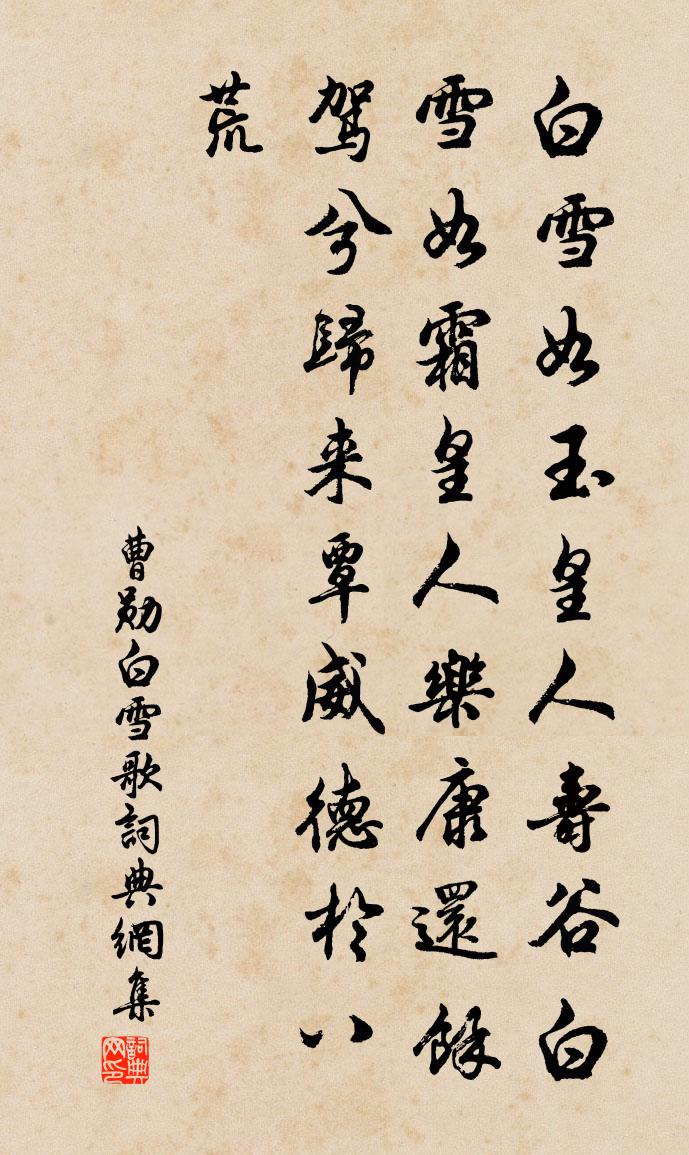 白雪如玉皇人壽谷白
雪如霜皇人樂康還餘
駕兮歸来覃威德於八
荒
曹勛白雪歌詞典網集
詞典网印